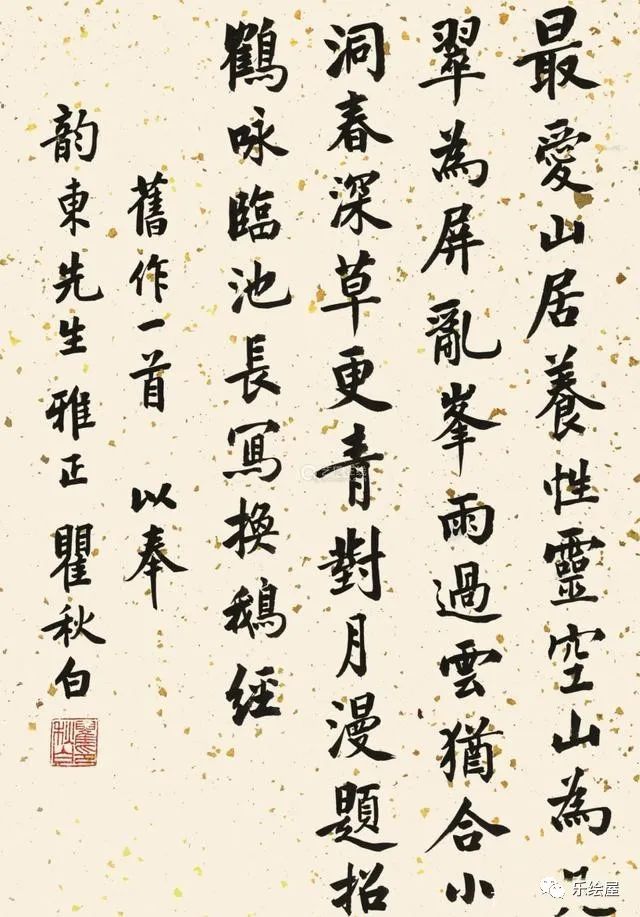 最愛山居養性靈空山為
翠為屏亂峯雨過雲猶合小
洞春深草更青對月漫題招
鶴咏臨池長寫換鵝經
舊作一首 以奉
韵東先生雅正 瞿秋白
乐绘屋